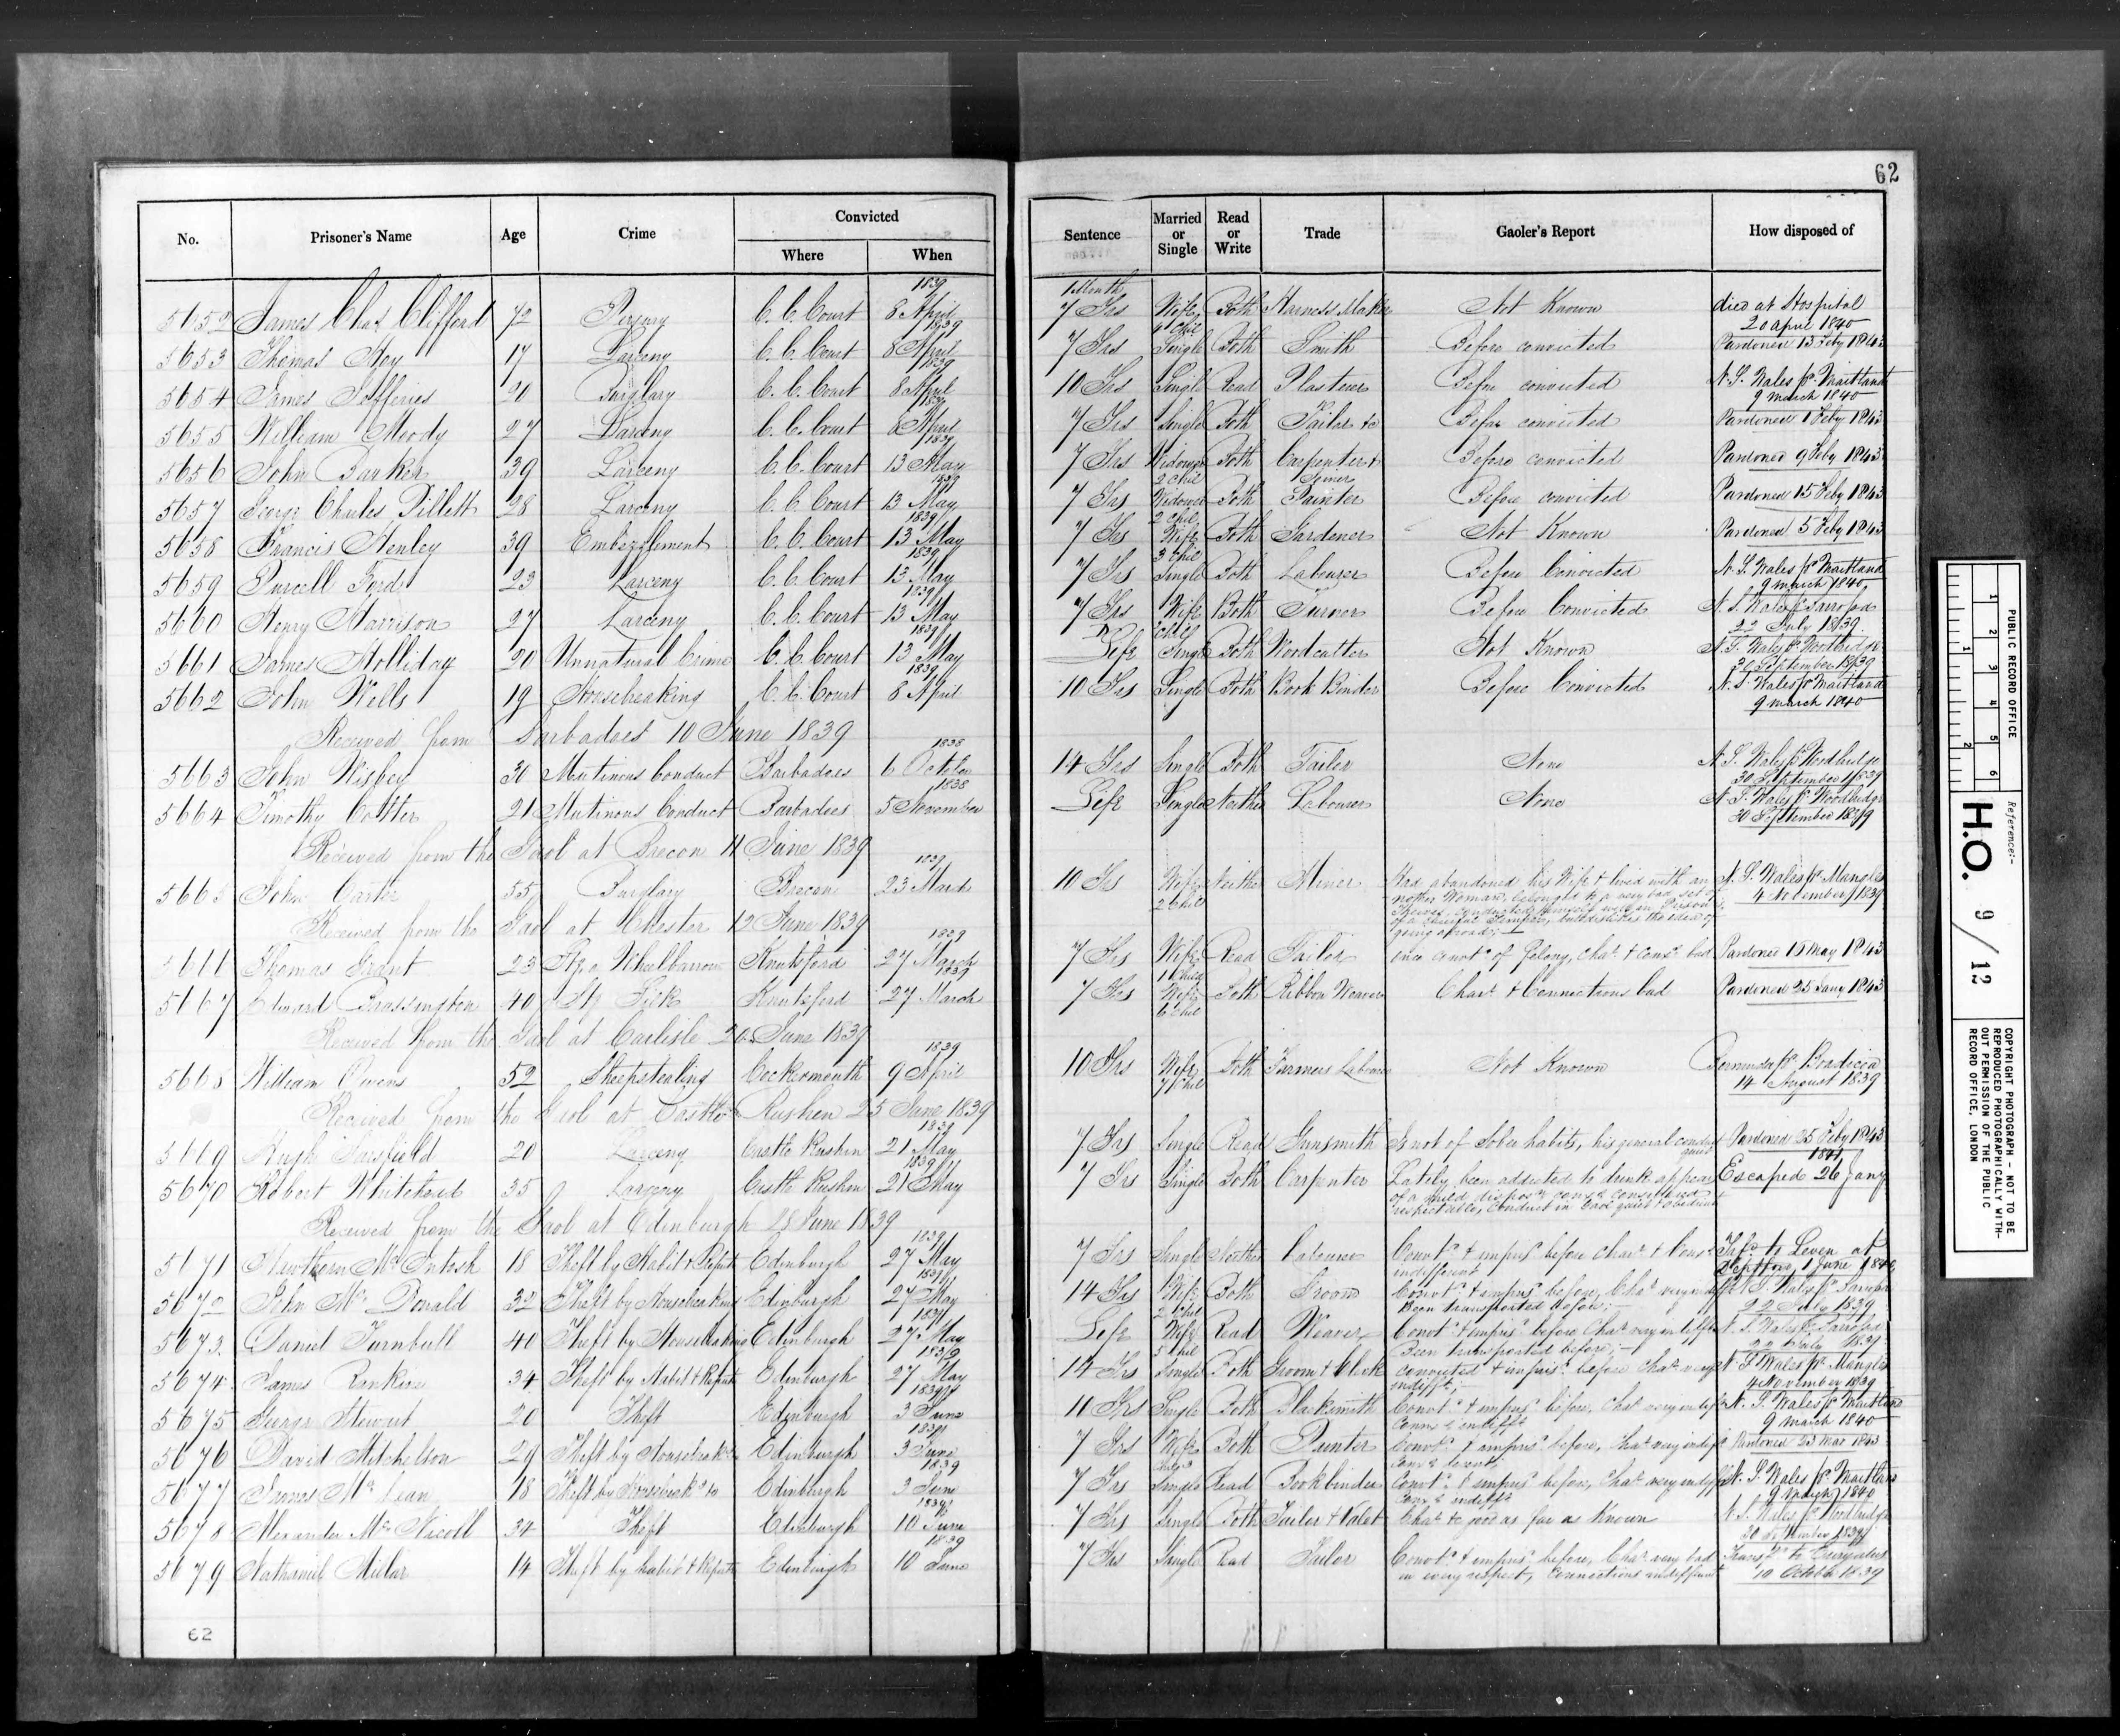 62
No. Prisoner's Name Age Crime Convicted Where When Sentence Married or Single Read or Write Trade Gaoler's Report How disposed of
5652 James Chas Clifford 72 Perjury C. C. Court 8 April 1839 1 Month 7 Yrs Wife, 6 Chil Both Harness Maker Not Known died at Hospital 20 april 1840
5653 Thomas Hoy 17 Larceny C. C. Court 8 April 1839 7 Yrs Single Both Smith Before convicted Pardoned 13 Feby 1843
5654 James Jefferies 20 Burglary C. C. Court 8 April 1839 10 Yrs Single Read Plasterer Before convicted N. S. Wales pr Maitland 9 march 1840
5655 William Moody 27 Larceny C. C. Court 8 April 1839 7 Yrs Single Both Tailor &c Before convicted Pardoned 1 Feby 1843
5656 John Barker 39 Larceny C. C. Court 13 May 1839 7 Yrs Widower 2 Chil Both Carpenter & Joiner Before convicted Pardoned 9 Feby 1843
5657 George Charles Pillett 28 Larceny C. C. Court 13 May 1839 7 Yrs Widower 2 Chil Both Painter Before convicted Pardoned 15 Feby 1843
5658 Francis Henley 39 Embezzlement C. C. Court 13 May 1839 7 Yrs Wife 3 Chil Both Gardener Not Known Pardoned 5 Feby 1843
5659 Purcell Ford 23 Larceny C. C. Court 13 May 1839 7 Yrs Single Both Labourer Before Convicted N. S. Wales pr Maitland 9 march 1840
5660 Henry Harrison 27 Larceny C. C. Court 13 May 1839 7 Yrs Wife Both Turner Before Convicted N. S. Wales pr 22 July 1839
5661 James Holliday 20 Unnatural Crime C. C. Court 13 May 1839 Life Single Both Woodcutter Not Known N. S. Wales pr Woodbridge 30 September 1839
5662 John Wells 19 Housebreaking C. C. Court 8 April 1839 10 Yrs Single Both Book Binder Before Convicted N. S. Wales pr Maitland 9 march 1840
Received from Barbadoes 10 June 1839
5663 John Wisbey 30 Mutinous Conduct Barbadoes 6 October 1838 14 Yrs Single Both Tailor None N. S. Wales pr Woodbridge 30 September 1839
5664 Timothy Cotter 21 Mutinous Conduct Barbadoes 5 November 1838 Life Single Neither Labourer None N. S. Wales pr Woodbridge 30 September 1839
Received from the Gaol at Brecon 11 June 1839
5665 John Carter 55 Burglary Brecon 23 March 1839 10 Yrs Wife 2 Chil Neither Miner Had abandoned his Wife & lived with another Woman, belonged to a very bad set of Thieves, conducted himself well in Prison, but dislikes the idea of going abroad
Received from the Gaol at Chester 12 June 1839
Thomas Grant 23 Stg a Wheelbarrow Knutsford 27 March 1839 7 Yrs Wife 1 Child Read Tailor once convt of Felony, Chart & Conns bad Pardoned 15 May 1843
5167 Edward Brassington 40 Stg Knutsford 27 March 1839 7 Yrs Wife 6 Chil Both Ribbon Weaver Chart & Connections bad Pardoned 25 Jany 1843
Received from the Gaol at Carlisle 20 June 1839
5668 William Owens 52 Sheepstealing Cockermouth 9 April 1839 10 Yrs Wife 7 Chil Both Farmers Labourer Not Known Bermuda pr Boadicea 14 August 1839
Received from the Gaol at Castle Rushen 25 June 1839
Hugh Sarsfield 20 Larceny Castle Rushen 21 May 1839 7 Yrs Single Read Gunsmith Is not of Sober habits, his general conduct quiet Pardoned 25 Feby 1843
5670 Robert Whitehead 35 Larceny Castle Rushen 21 May 1839 7 Yrs Single Both Carpenter Lately been addicted to drink appears of a mild disposn conns considered respectable, Conduct in Gaol quiet & obedient Escaped 26 Jany 1841
Received from the Gaol at Edinburgh 28 June 1839
5171 McIntosh 18 Theft by Habit & Repute Edinburgh 27 May 1839 7 Yrs Single Neither Labourer Convt & imprisd before Chart & Conns indifferent Trfd to Leven at Deptford 1 June
5672 John McDonald 32 Theft by Housebreaking Edinburgh 27 May 1839 14 Yrs Wife 2 Chil Both Groom Convt & imprisd before, Chart very indifft Been transported before N. S. Wales pr 22 July 1839
5673 Daniel Turnbull 40 Theft by Housebreaking Edinburgh 27 May 1839 Life Wife 5 Chil Read Weaver Convt & imprisd before Chart very indifft Been transported before N. S. Wales pr 22 July 1839
5674 James Rankine 34 Theft by Habit & Repute Edinburgh 27 May 1839 14 Yrs Single Both Groom & Clerk convicted & imprisd before Chart very indifft N. S. Wales pr Mangles 4 November 1839
5675 George Stewart 20 Theft Edinburgh 3 June 1839 10 Yrs Single Both Blacksmith Convt & imprisd before, Chart very indifft Conns indifft N. S. Wales pr Maitland 9 march 1840
5676 David Mitchelson 29 Theft by Housebreakg Edinburgh 3 June 1839 7 Yrs Wife Both Painter Convt & imprisd before, Chart very indifft Pardoned 23 Mar 1843
5677 James McLean 18 Theft by Housebreakg &c Edinburgh 3 June 1839 7 Yrs Single Read Bookbinder Convt & imprisd before, Chart very indifft Conns indifft N. S. Wales pr Maitland 9 march 1840
5678 Alexander McNicoll 34 Theft Edinburgh 10 June 1839 7 Yrs Single Both Tailor & Valet Chart &c good as far as Known N. S. Wales pr Woodbridge 30 September 1839
5679 Nathaniel Millar 14 Theft by habit & Repute Edinburgh 10 June 1839 7 Yrs Single Read Tailor Convt & imprisd before, Chart very bad in every respect, Connections indifferent Transfd to Euryalus 10 October 1839
62
PUBLIC RECORD OFFICE
Reference:-
H.O. 9/12
COPYRIGHT PHOTOGRAPH - NOT TO BE
REPRODUCED PHOTOGRAPHICALLY WITH-
OUT PERMISSION OF THE PUBLIC
RECORD OFFICE, LONDON